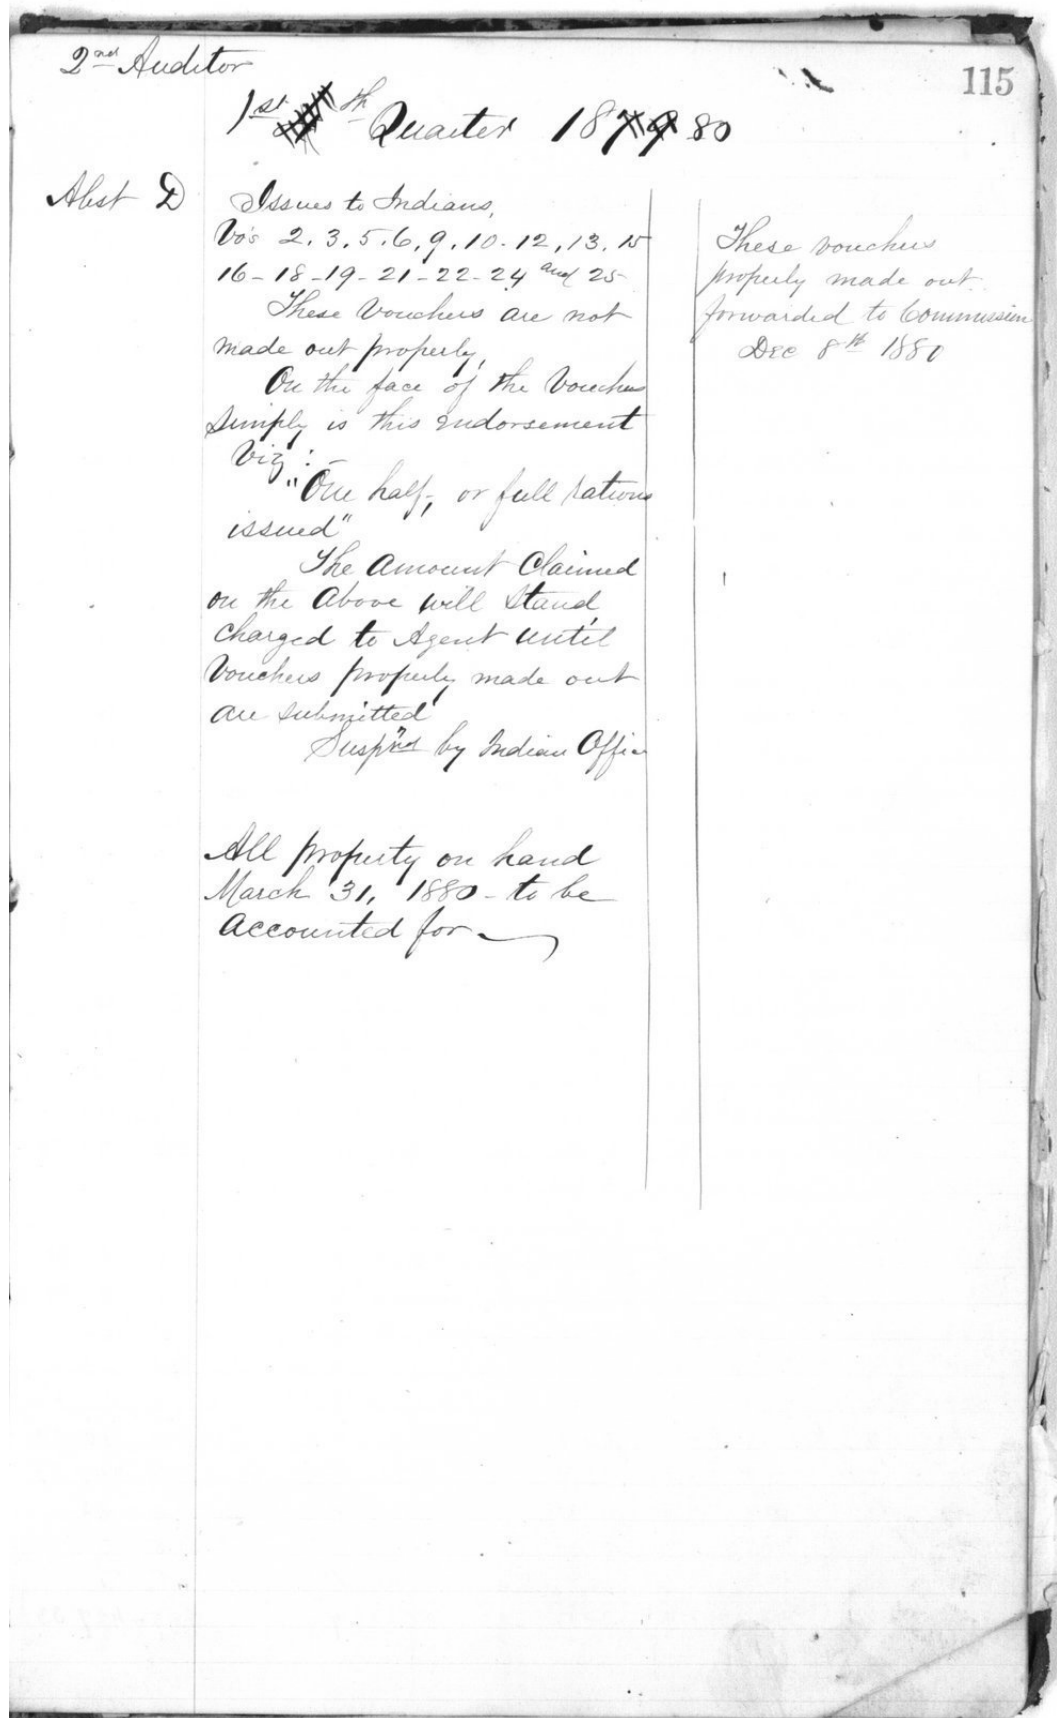 2nd Auditor
115
1st th Quarter 187980
Abst D
Issues to Indians,
Vo's 2, 3, 5, 6, 9, 10 - 12, 13, 15
16 - 18 - 19 - 21 - 22 - 24 and 25
These Vouchers are not
made out properly,
On the face of the Vouchers
simply is this endorsement
Viz: -
"One half, or full rations
issued"
The Amount Claimed
on the Above will Stand
Charged to Agent until
Vouchers properly made out
are submitted
Susp'nd by Indian Office
All property on hand
March 31, 1880 - to be
Accounted for
These vouchers
properly made out
forwarded to Commission
Dec 8th 1880